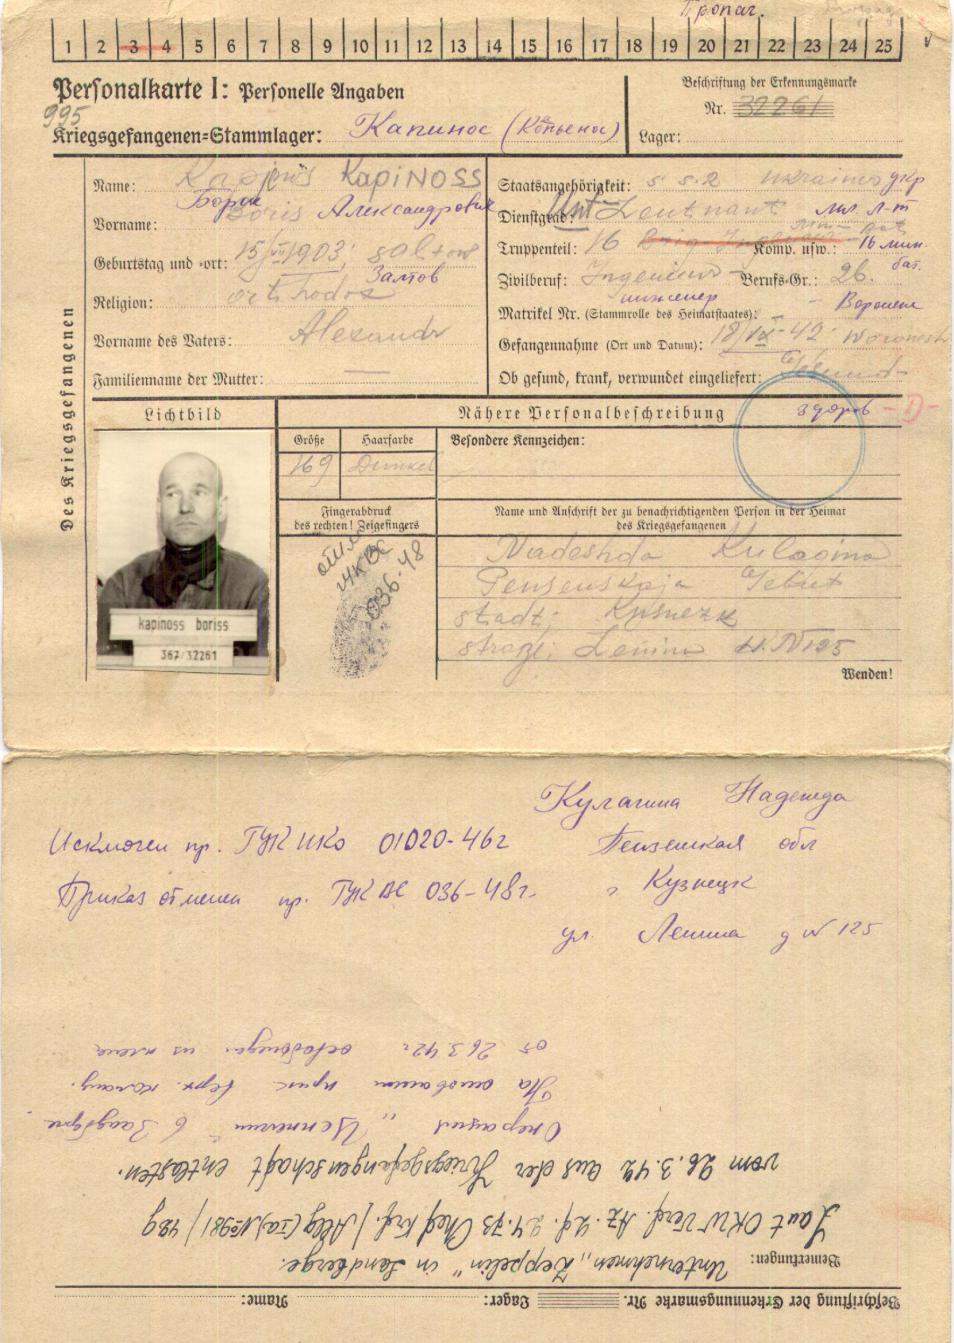 Пропаг.
1 2 3 4 5 6 7 8 9 10 11 12 13 14 15 16 17 18 19 20 21 22 23 24 25
Personalkarte I: Personelle Angaben
Beschriftung der Erkennungsmarke
Nr. 32261
995
Kriegsgefangenen-Stammlager: Капинос (Копьенос)
Lager:
Des Kriegsgefangenen
Name: Kapinoss
Борис Александрович
Vorname: Boris
Geburtstag und -ort: 15/ 1903, Saltow
Залтов
Religion: orthodox
Vorname des Vaters: Alexandr
Familienname der Mutter: —
Staatsangehörigkeit: Ukrainer укр
Dienstgrad: Unt-Leutnant мл. л-т
Truppenteil: 16 Komp. usw.: 16 мин.
бат.
Zivilberuf: Ingenieur Berufs-Gr.: 26.
инженер Воронеж
Matrikel Nr. (Stammrolle des Heimatstaates): -
Gefangennahme (Ort und Datum): 18/ -42 Woronesh
Ob gesund, krank, verwundet eingeliefert: Gesund
здоров - D -
Lichtbild
Nähere Personalbeschreibung
Größe Haarfarbe Besondere Kennzeichen:
169 Dunkel
Fingerabdruck
des rechten! Zeigefingers
036-48
Name und Anschrift der zu benachrichtigenden Person in der Heimat
des Kriegsgefangenen
Nadeshda Kulagina
Pensenskaja Gebiet
stadt: Kusnezk
straße: Lenina H. N 125
Wenden!
kapinoss boriss
367/32261
Кулагина Надежда
Исключен пр. ГУК 01020-46г
Пензенская обл
Приказ отменен пр. ГУК ВС 036-48г.
г Кузнецк
ул. Ленина д N 125
Beschriftung der Erkennungsmarke Nr. Lager: Name:
Bemerkungen: Unternehmen „Zeppelin" in Sandberge.
Laut OKW Verf. Az. 2f. 24.73 Chef Krf. / Allg (Ia) № 981/42g
vom 26.3.42 aus der Kriegsgefangenschaft entlassen.
Операция „Цеппелин" в Зандберге.
На основании прик. верх. команд.
от 26 3 42 г освобожден из плена